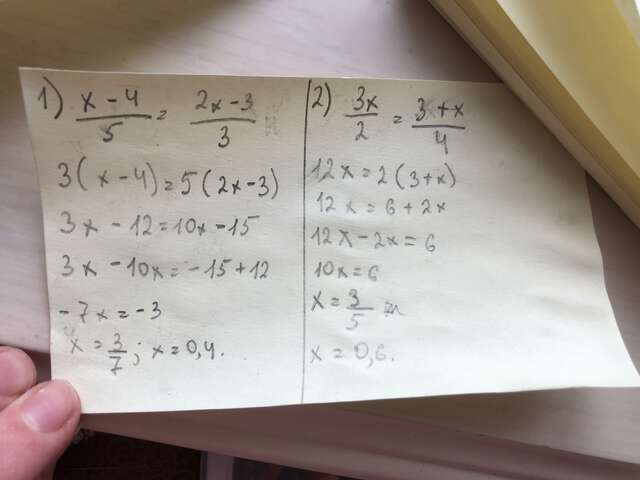 1) x - 4 / 5 = 2x - 3 / 3
3(x - 4) = 5(2x - 3)
3x - 12 = 10x - 15
3x - 10x = -15 + 12
-7x = -3
x = 3/7; x = 0,4.
2) 3x / 2 = 3 + x / 4
12x = 2(3 + x)
12x = 6 + 2x
12x - 2x = 6
10x = 6
x = 3/5
x = 0,6.